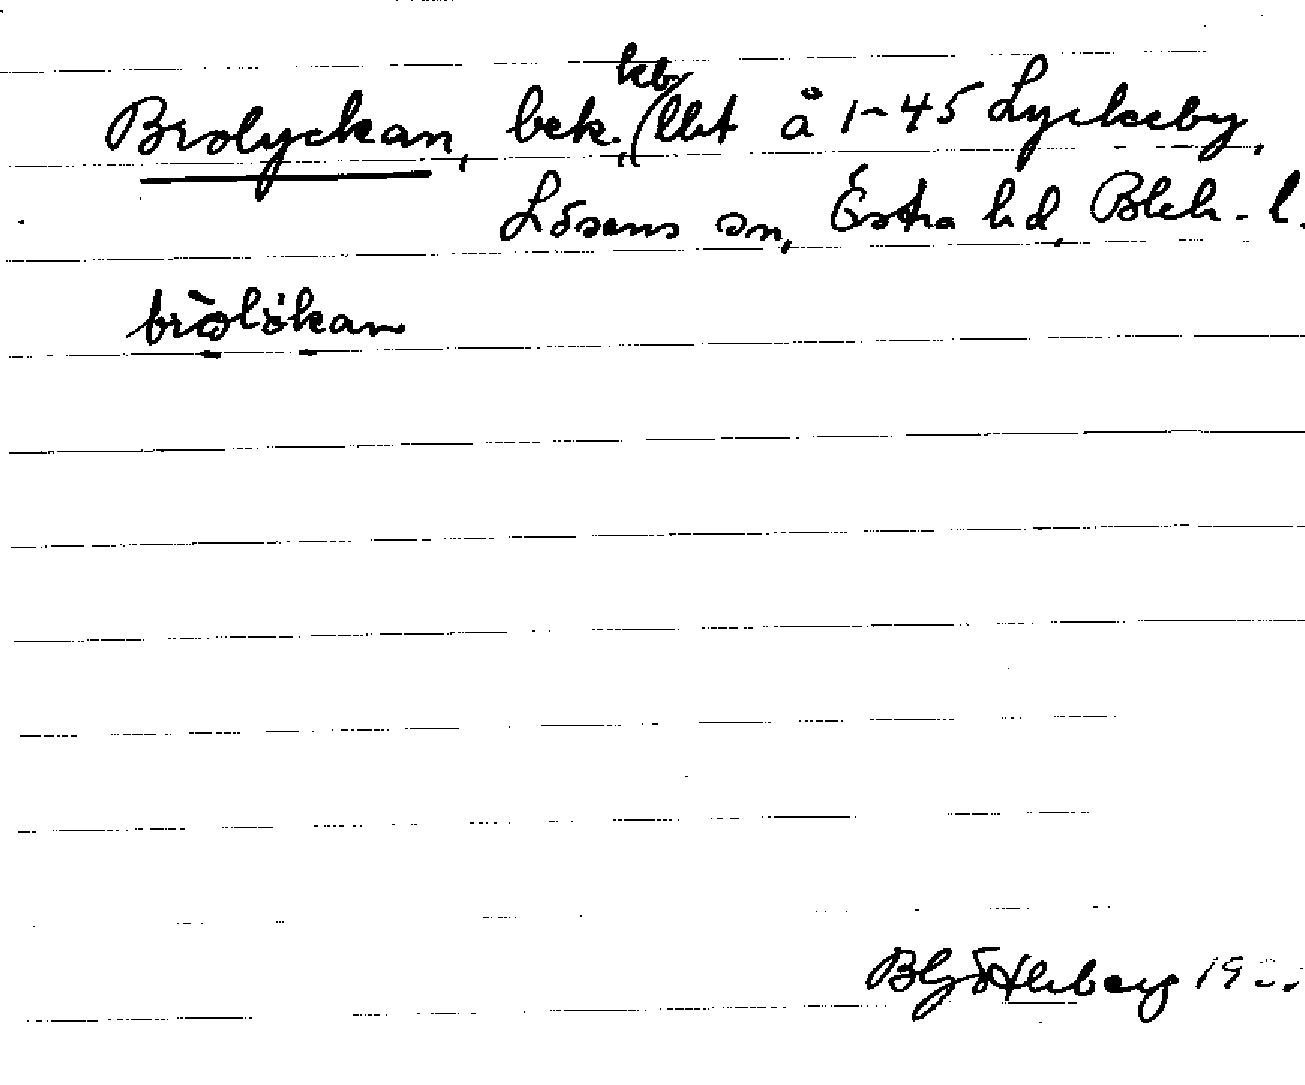 Brolyckan, bek., kb/lht å 1-45 Lyckeby,
Lösens sn, Östra hd, Blek. l.
bròlökan
19